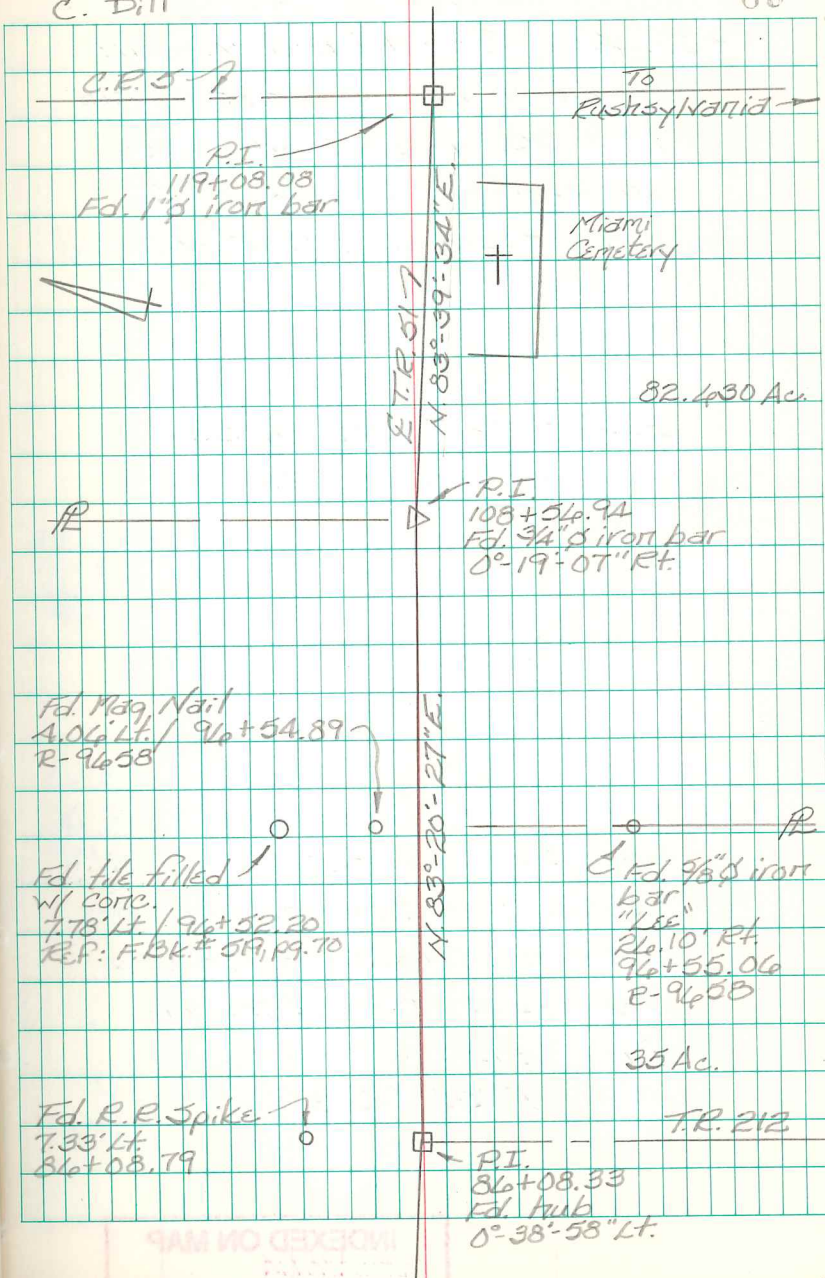 C. Dill
C.R. 5
To
Rushsylvania
P.I.
119+08.08
Fd. 1"ø iron bar
Miami
Cemetery
℄ T.R. 51
N. 83°-39'-34" E.
82.630 Ac.
P.I.
108+56.94
Fd. 3/4"ø iron bar
0°-19'-07" Rt.
℄
Fd. Mag Nail
4.06' Lt. / 96+54.89
R-9658
N. 83°-20'-27" E.
Fd. tile filled
w/ conc.
7.78' Lt. / 96+52.20
Ref: F.BK.# pg. 70
℄
Fd. 5/8"ø iron
bar
"LEE"
26.10' Rt.
96+55.06
R-9658
35 Ac.
Fd. R.R. Spike
7.33' Lt.
86+08.79
T.R. 212
P.I.
86+08.33
Fd. hub
0°-38'-58" Lt.
INDEXED ON MAP